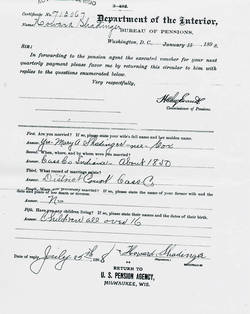 3-402.
Certificate No.
Department of the Interior,
Name, Howard Shadinger
BUREAU OF PENSIONS,
Washington, D. C., January 15, 1898.
SIR:
In forwarding to the pension agent the executed voucher for your next
quarterly payment please favor me by returning this circular to him with
replies to the questions enumerated below.
Very respectfully,
Commissioner of Pensions.
First. Are you married? If so, please state your wife's full name and her maiden name.
Answer. Yes. Mary A Shadinger nee Cox
Second. When, where, and by whom were you married?
Answer. Cass Co Indiana About 1850
Third. What record of marriage exists?
Answer. District Court Cass Co
No
Fifth. Have you any children living? If so, please state their names and the dates of their birth.
Answer. all over 16
Date of reply, July 1898 Howard Shadinger
RETURN TO
U. S. PENSION AGENCY,
MILWAUKEE, WIS.